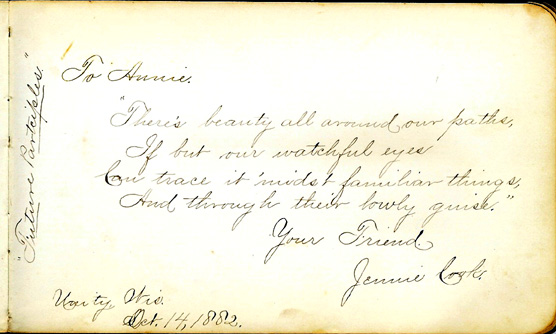 To Annie.
"There's beauty all around our paths,
If but our watchful eyes
Can trace it 'midst familiar things,
And through their lowly guise."
Your Friend
Jennie Cook.
Unity, Wis.
Oct. 14, 1882.
"Future Participles."